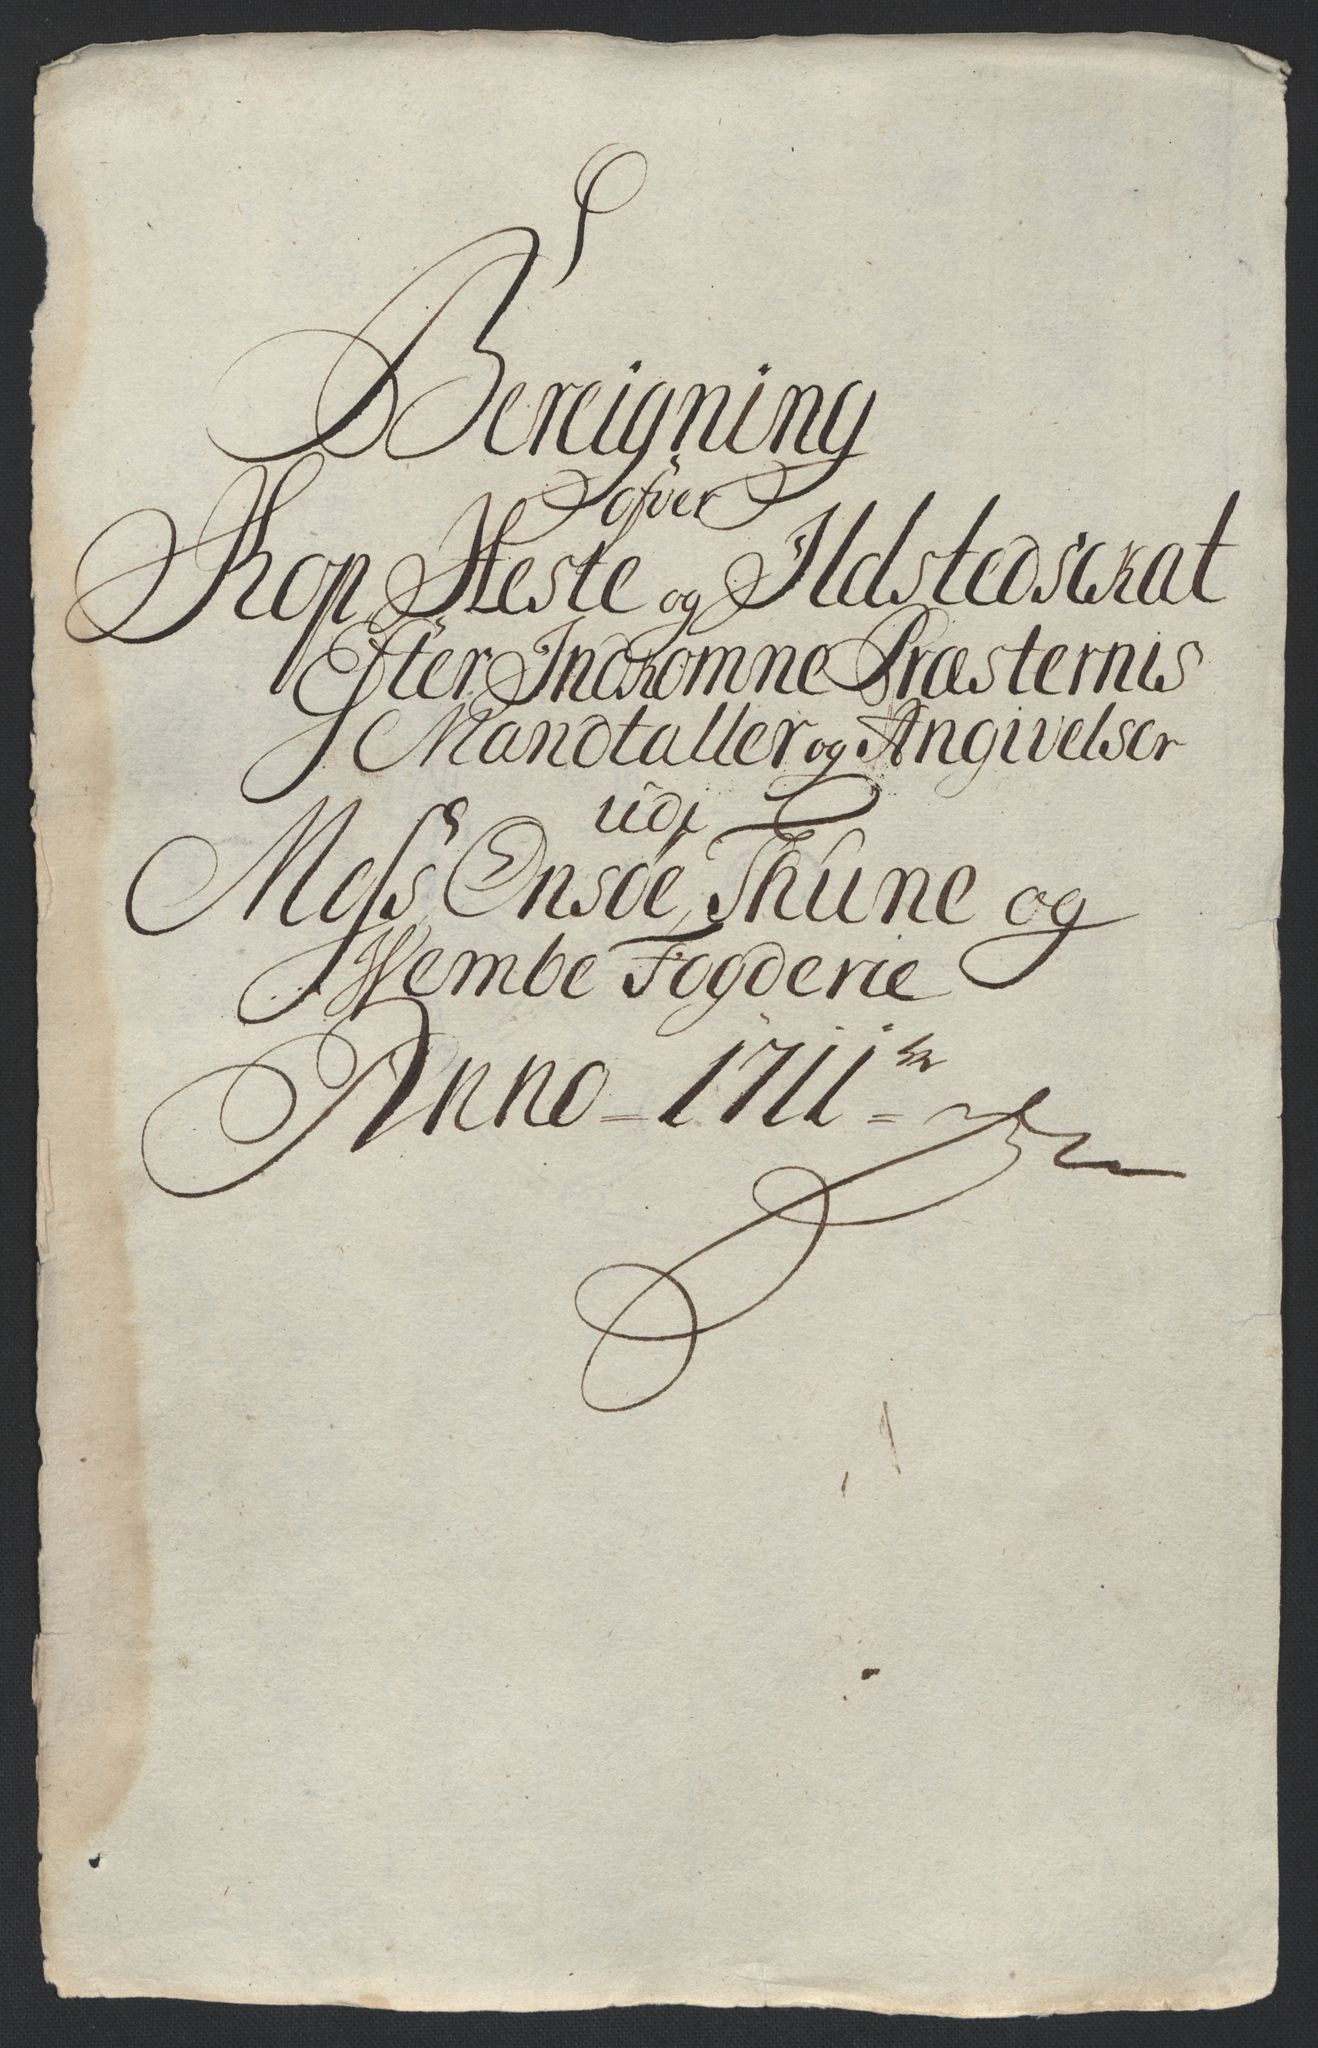 Bereigning
ofver
Kop, Heste og Ildstedsskat
Efter Indkomne Præsternis
Mandtaller og Angivelser
udj
Moss, Onsøe, Thune og
Wembe Fogderie
Anno - 1711